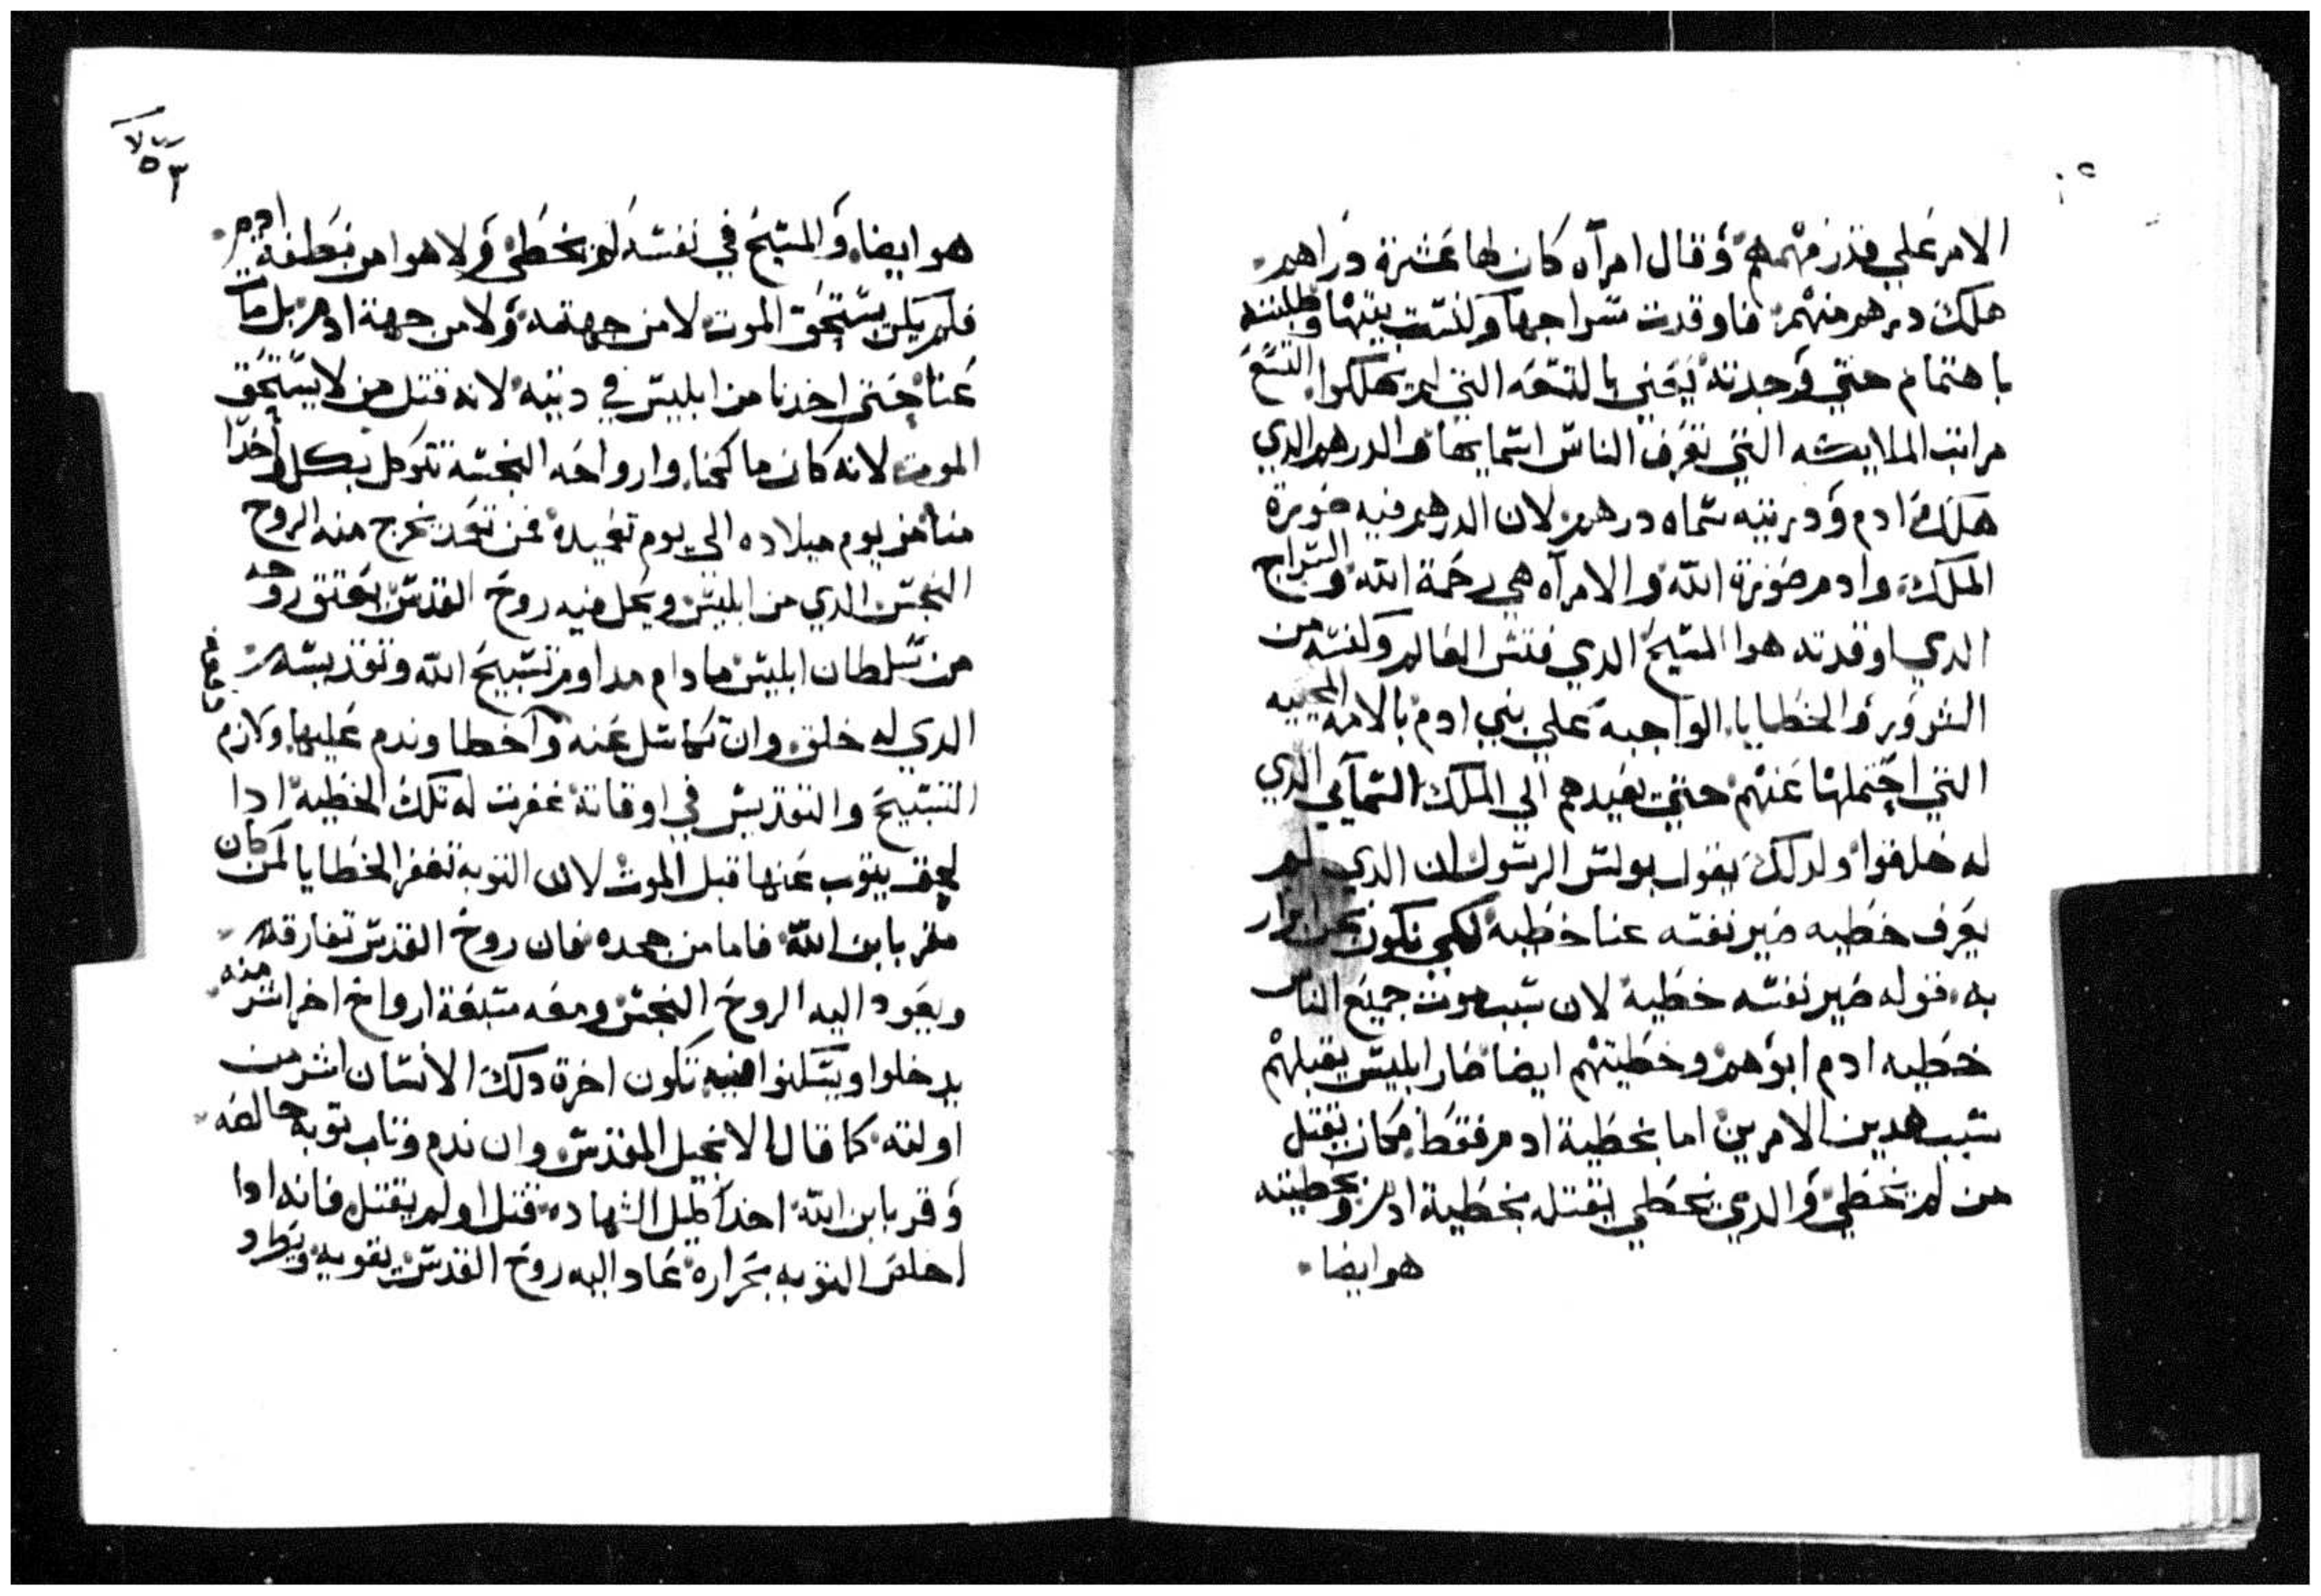 الامر علي قدر فهمهم وقال امرآه كان لها عشرة دراهم
هلك درهم منهم فاوقدت سراجها وكنست بيتها وطلبته
باهتمام حتي وجدته يعني بالتسعه التي لم يهلكوا التسع
مراتب الملايكه التي تعرف الناس اسمايها والدرهم الدي
هلك ادم ودريته سماه درهم لان الدرهم فيه صورة
الملك وادم صورة الله والامرآه هي رحمة الله والسراج
الدي اوقدته هوا المسيح الدي فتش العالم وكنسه من
الشرور والخطايا الواجبه علي بني ادم بالامه المحييه
التي احتملها عنهم حتي يعيدهم الي الملك السمآيي الدي
له خلقوا ولدلك يقول بولس الرسول ان الدي لم
يعرف خطيه صير نفسه عنا خطيه لكي نكون نحن ابرار
به فقوله صير نفسه خطيه لان سبب موت جميع الناس
خطيه ادم ابوهم وخطيتهم ايضا صار ابليس يقبلهم
سبب هدين الامرين اما بخطية ادم فقط فكان يقتل
من لم يخطي والدي يخطي يقتله بخطية ادم وبخطيته
هو ايضا
٥٣
هو ايضا والمسيح في نفسه لم يخطي ولا هوا من نطفة ادم
فلم يكن يستحق الموت لا من جهته ولا من جهة ادم بل مات
عنا حتي اخدنا من ابليس في ديته لانه قتل من لا يستحق
الموت لانه كان ماكنا وارواحه النجسه تتوكل بكل واحدا
منا من يوم ميلاده الي يوم تعميده فمن تعمد يخرج منه الروح
النجس الدي من ابليس ويحل فيه روح القدس يعتق روحه
من سلطان ابليس ما دام مداوم تسبيح الله وتقديسه
الدي له خلق وان تكاسل عنه وآخطا وندم عليها ولازم
التسبيح والتقديس في اوقاته غفرت له تلك الخطيه ادا
لحق يتوب عنها قبل الموت لان التوبه تغفر الخطايا لمن كان
مقر بابن الله فاما من جحده فان روح القدس تفارقه
ويعود اليه الروح النجس ومعه سبعة ارواح اخر اشر منه
يدخلوا ويسكنوا فيه تكون اخرة دلك الانسان اشر من
اولته كما قال الانجيل المقدس وان ندم وتاب توبه خالصه
وقر بابن الله اخد اكليل الشهاده قتل او لم يقتل فانه ادا
اخلص التوبه بحراره عاد اليه روح القدس يقويه ويطرد